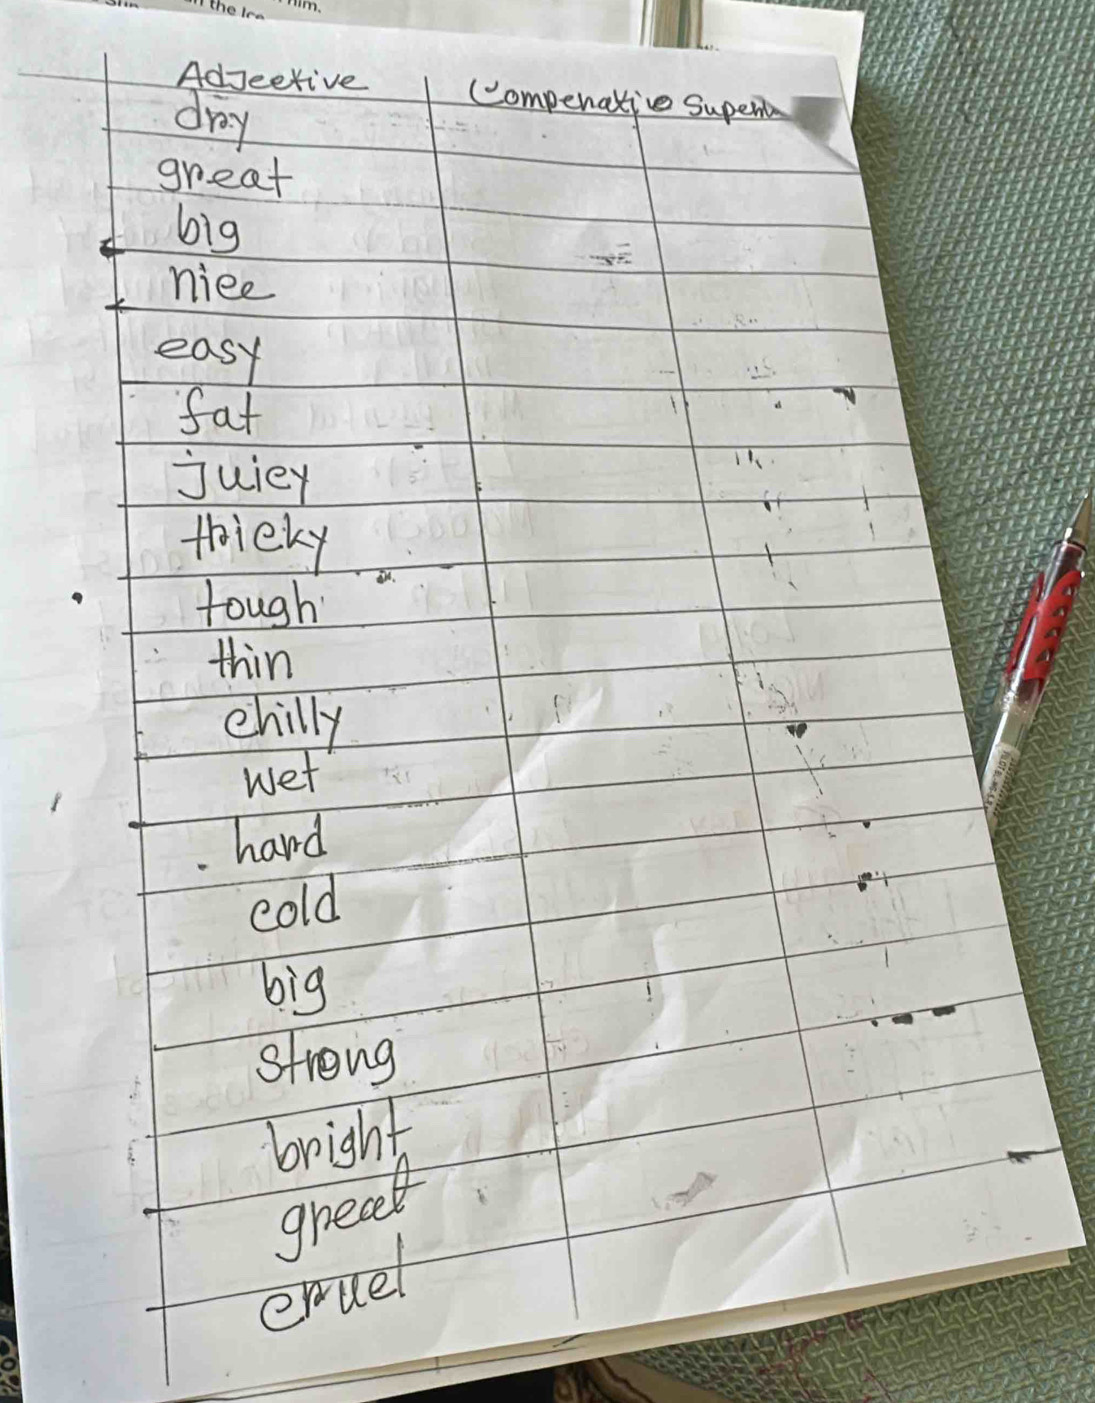 the Ice
him.
Adjective Comperative
dry
great
big
nice
easy
fat
juicy
thicky
tough
thin
chilly
wet
hard
cold
big
strong
bright
great
cruel